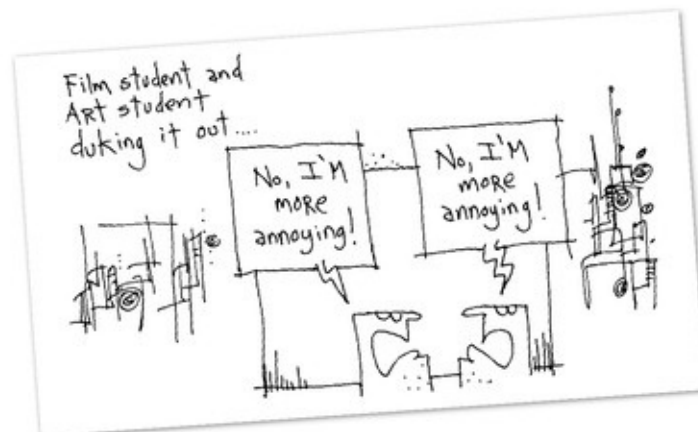 Film student and
Art student
duking it out....
No, I'm
more
annoying!
No, I'm
more
annoying!